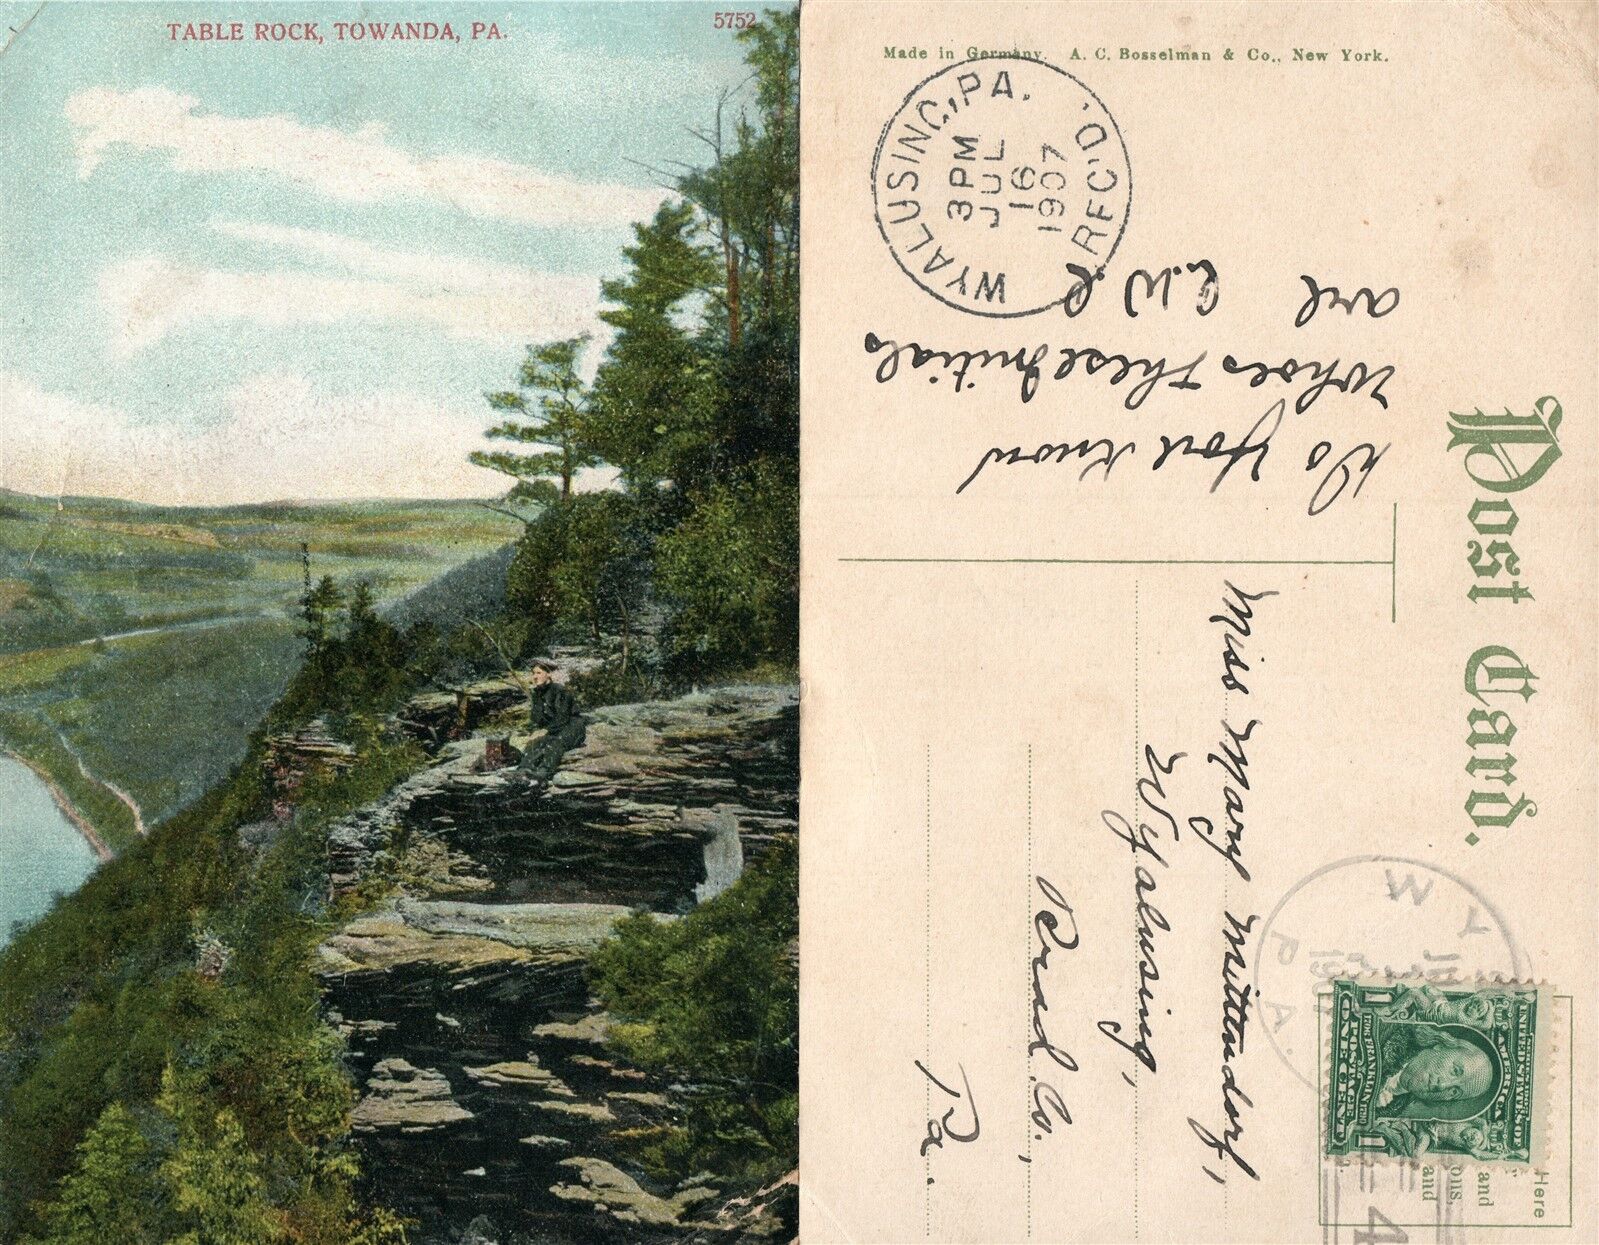 TABLE ROCK, TOWANDA, PA.
5752
Made in Germany. A. C. Bosselman & Co., New York.
WYALUSING, PA. REC'D.
3 PM
JUL
16
1907
Post Card.
Do You Know
Whoes These Initials
are C.W.R
Miss Mary Mittendorf,
Wyalusing,
Brad. Co.,
Pa.
WY
PA.
UNITED STATES OF AMERICA
FRANKLIN
POSTAGE
ONE CENT
1 1
Here
and
ons,
and
4